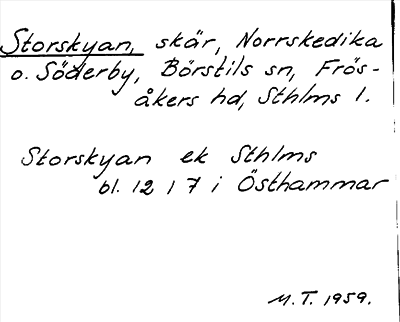 Storskyan, skär, Norrskedika
o. Söderby, Börstils sn, Frös-
åkers hd, Sthlms l.
Storskyan ek Sthlms
bl. 12 17 i Östhammar
M.T. 1959.